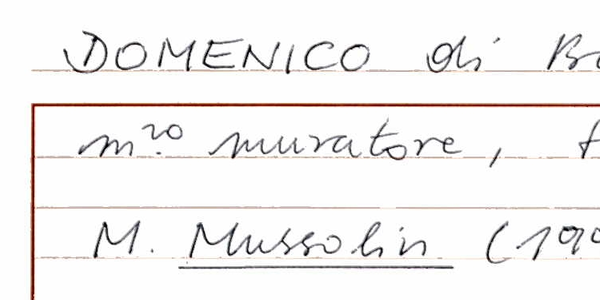 DOMENICO di
m.ro muratore,
M. Mussolin (199